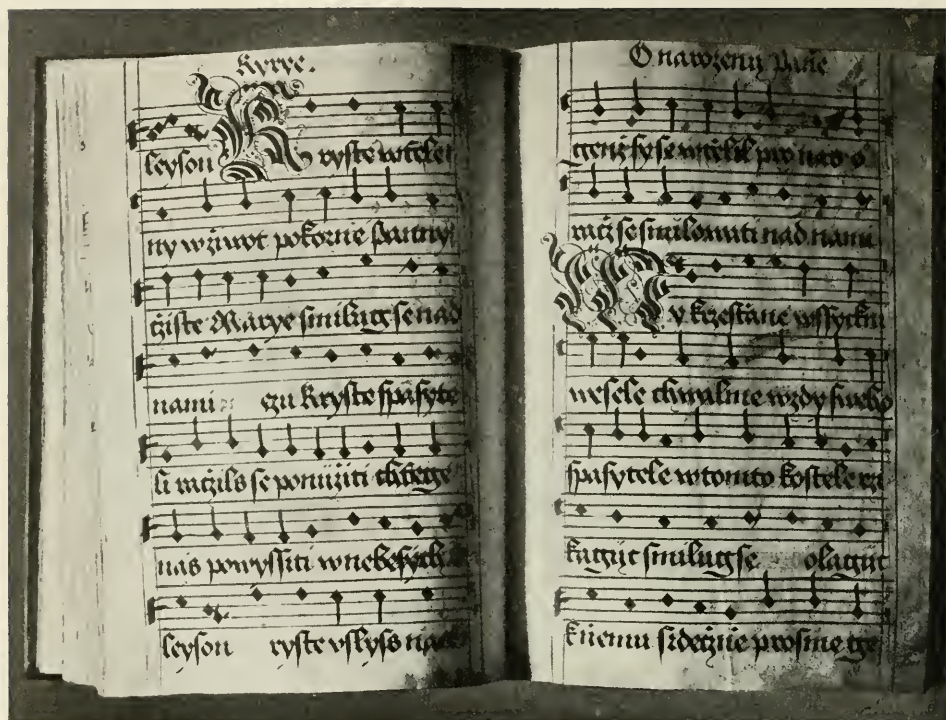 Kyrye.
leyson Kryste wtěle
ny wziwot pokorne panny
cziste Marye smilugse nad
nami gezu kryste spasyte
li raczils se ponijziti chtege
nas powyssiti wnebesych
leyson ryste vslyss
O narozenij Panie
genz sy se wtelil pro nas o
racz se smilowati nad nami
My krzestiane wssyckni
wesele chwalme wzdy sweho
spasytele wtomto kostele rz
kagijc smilugse olagijc
kniemu srdeczne prosme ge